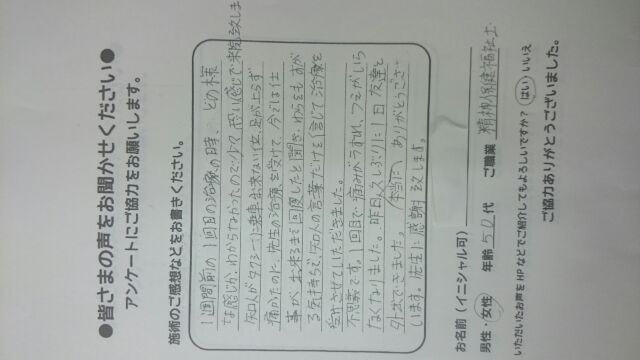 ●皆さまの声をお聞かせください●
アンケートにご協力をお願いします。
施術のご感想などをお書きください。
1週間前の1回目の治療の時、どの様
な感じか、わからなかったので少々思い感じで来院致しま
知人がタクシーに乗車出来ない位、足が上らず
痛かたのに、先生の治療を受けて、今では仕
事が出来るまで回復したと聞き、わらをもすが
る気持ちで、知人の言葉だけを信じて治療を
受けさせていただきました。
不思議です。1回目で痛みがうすれ、フミがいら
なくなりました。昨日、久しぶりに1日友達と
外出できました。本当にありがとうござい
います。先生に感謝致します。
お名前（イニシャル可）
男性・女性 年齢 50代 ご職業 精神保健福祉士
いただいたお声をHPなどでご紹介してもよろしいですか？ はい・いいえ
ご協力ありがとうございました。